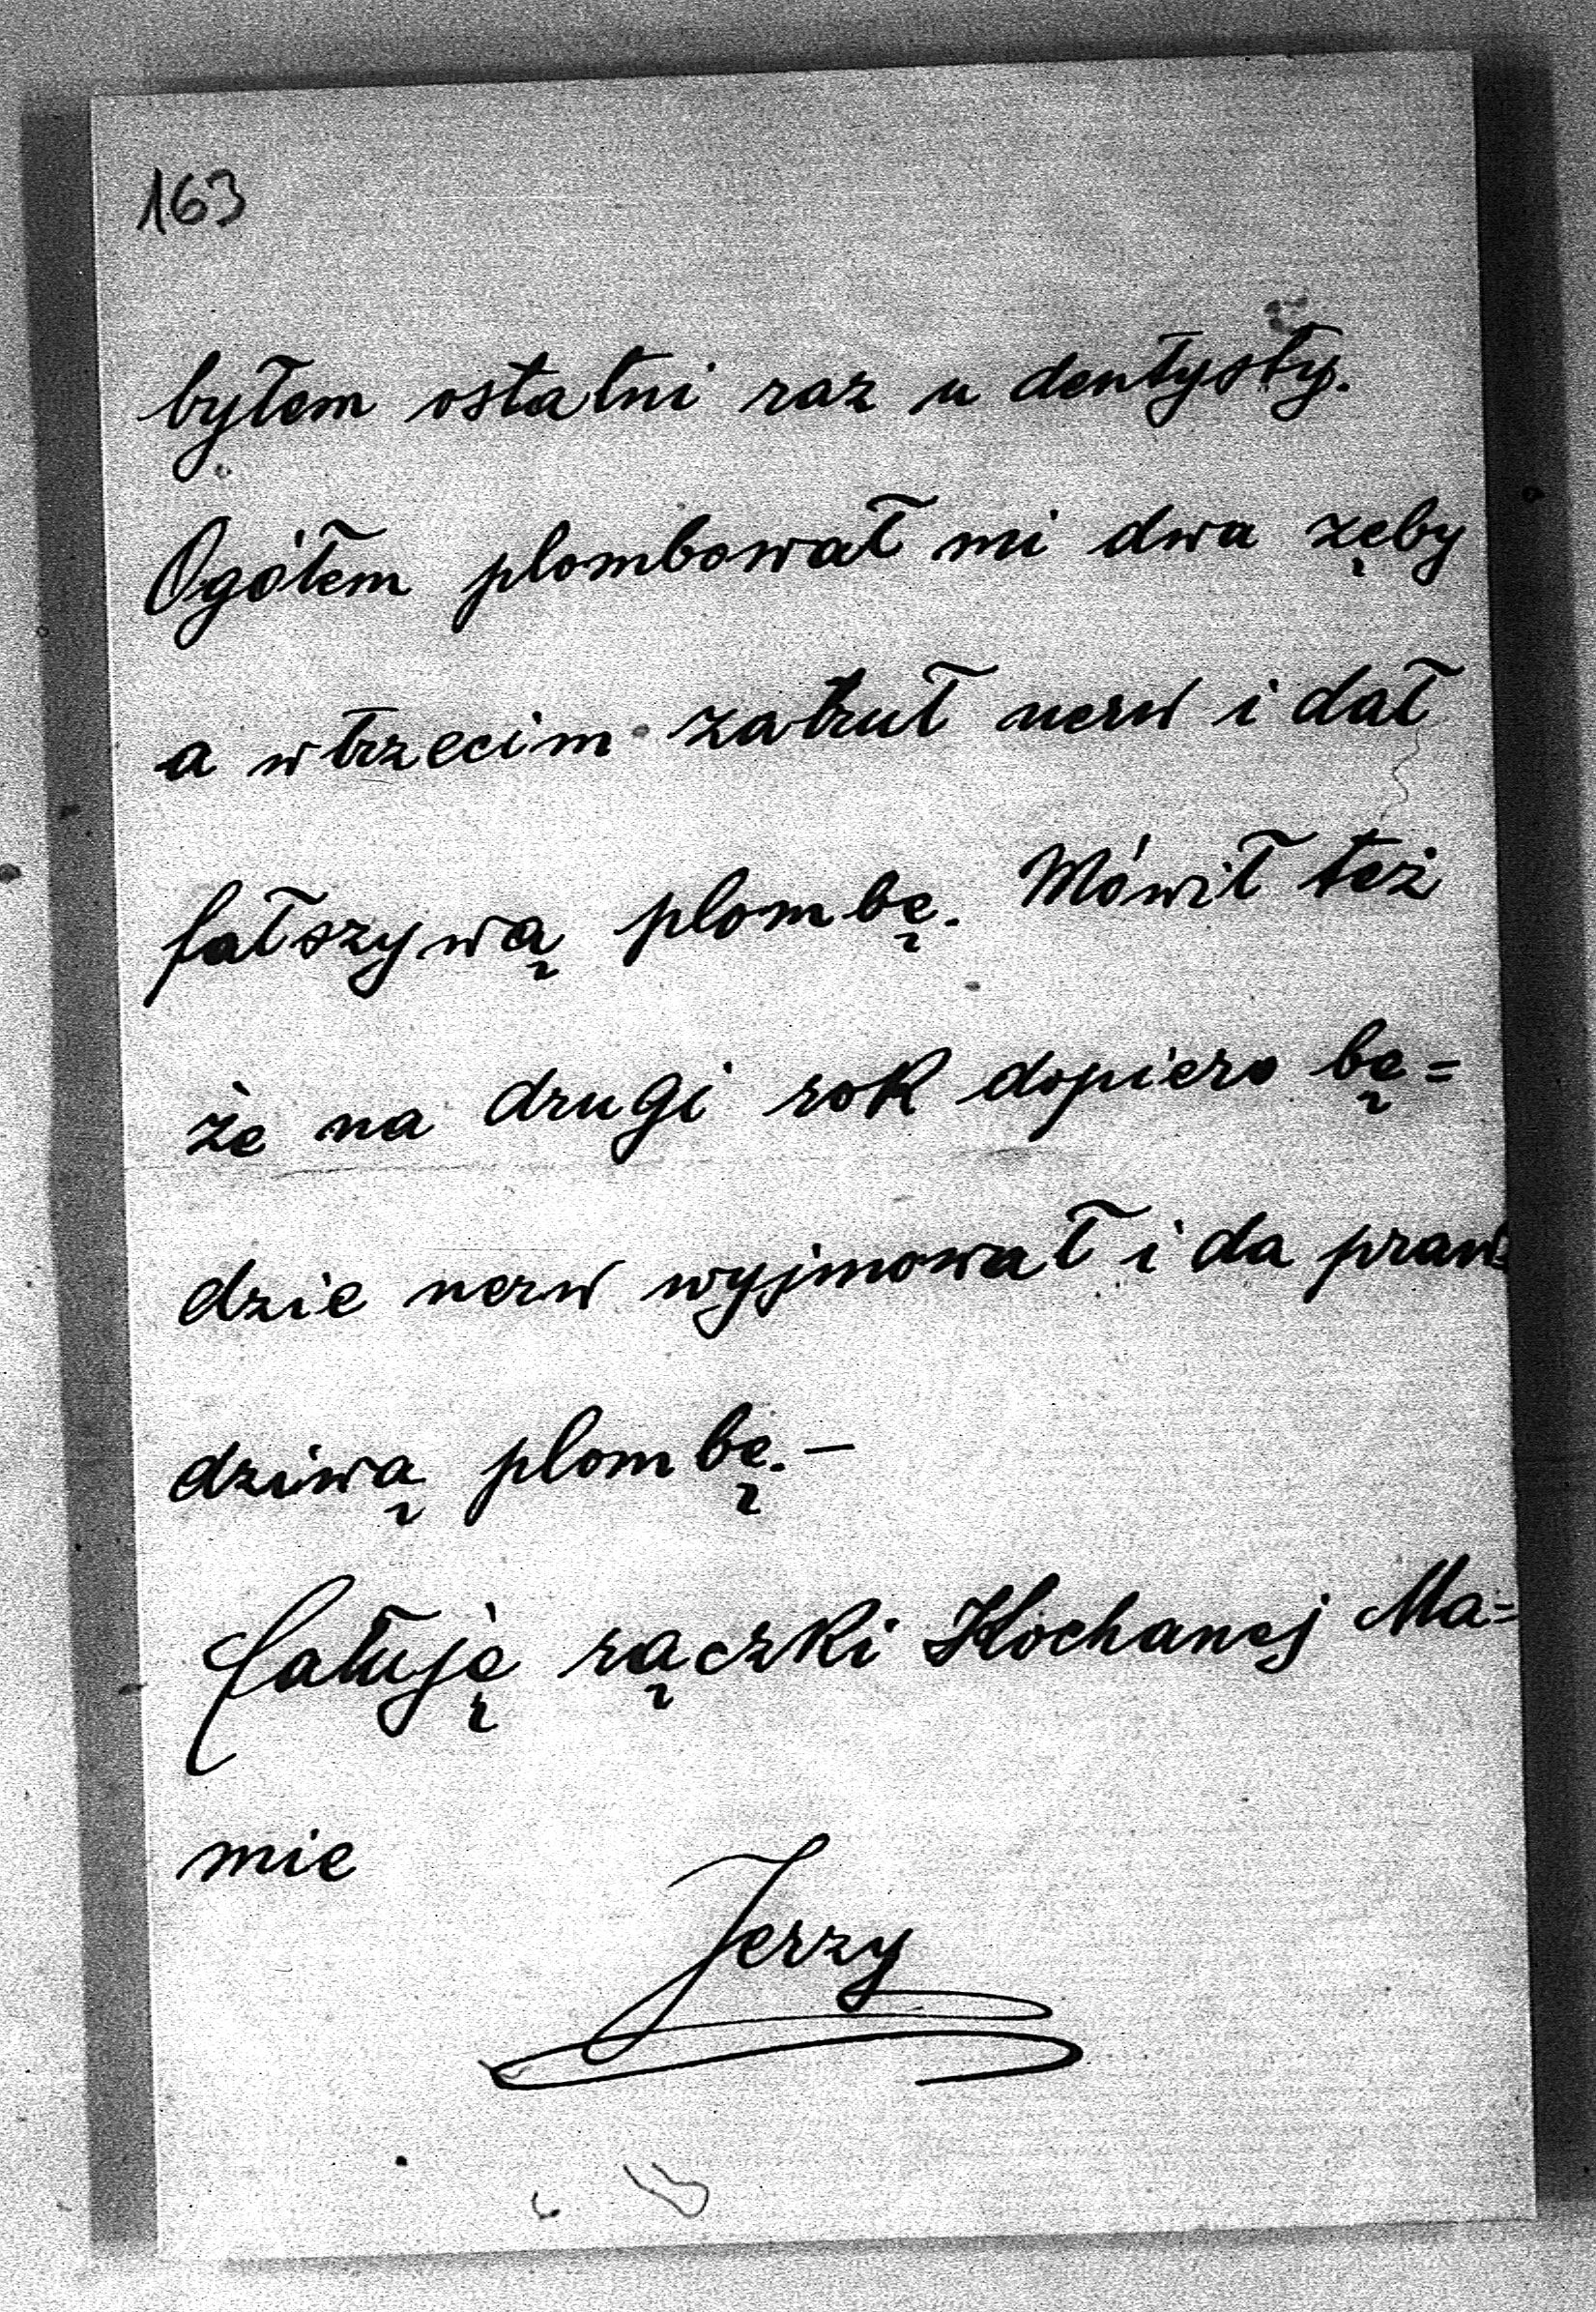 163
byłem ostatni raz u dentysty.
Ogółem plombował mi dwa zęby
a w trzecim zatruł nerw i dał
fałszywą plombę. Mówił też
że na drugi rok dopiero bę=
dzie nerw wyjmował i da praw=
dziwą plombę.—
Całuję rączki Kochanej Ma=
mie
Jerzy